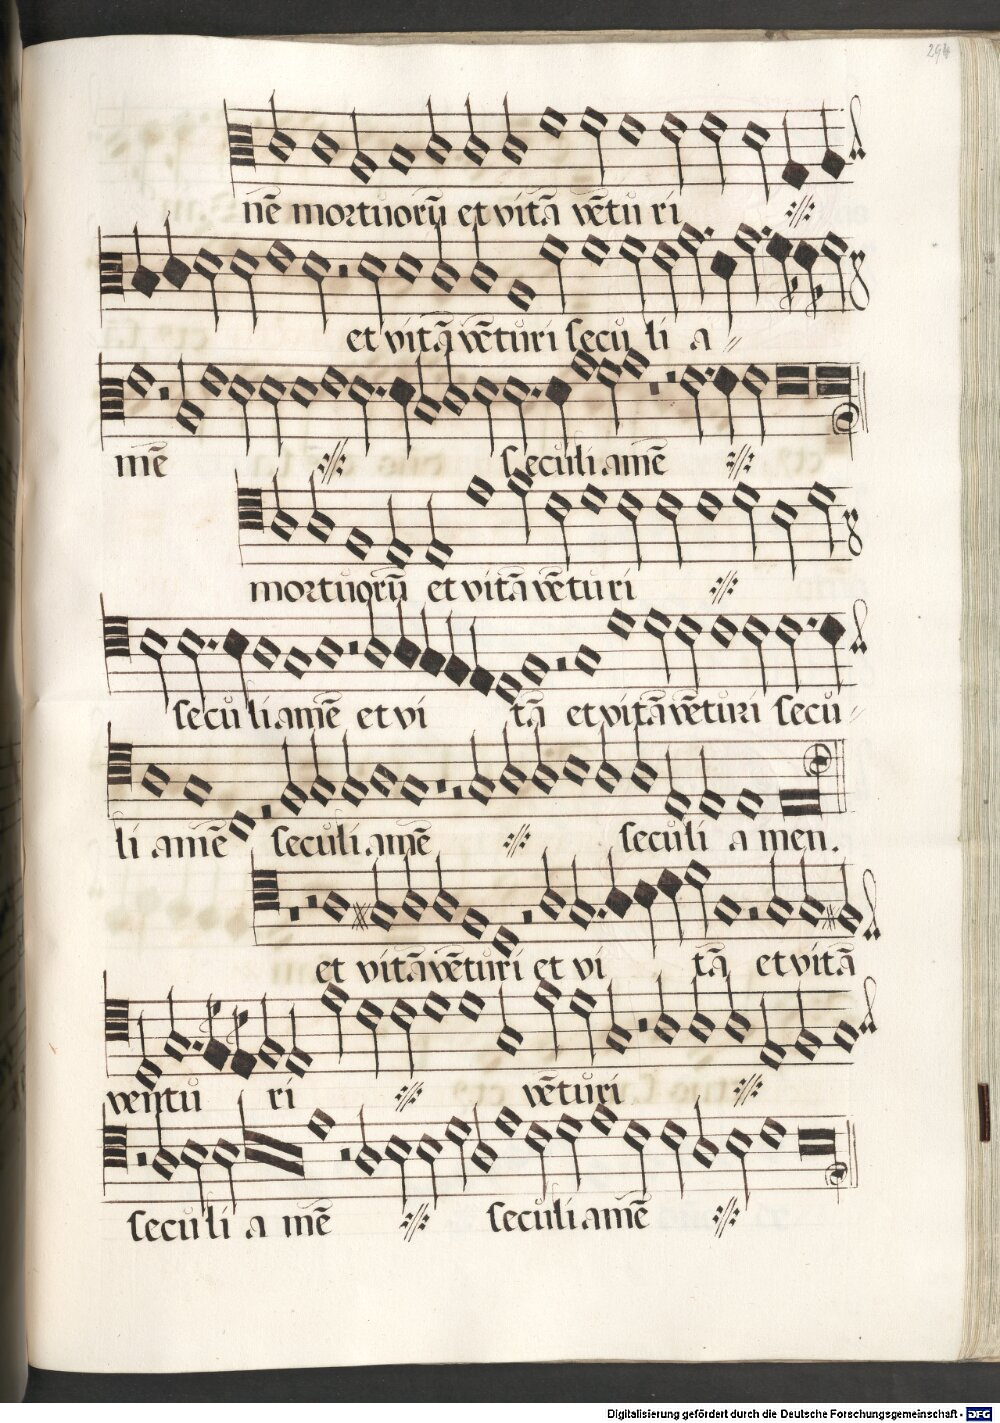 294
nē mortuorū et vitā vētu ri
et vitā vēturi secu li a
mē seculi amē
mortuorū et vitā vētu ri
seculi amē et vi tā et vitā vēturi secu
li amē seculi amē seculi a men.
et vitā vēturi et vi tā et vitā
ventu ri vēturi
seculi a mē seculi amē
Digitalisierung gefördert durch die Deutsche Forschungsgemeinschaft - DFG